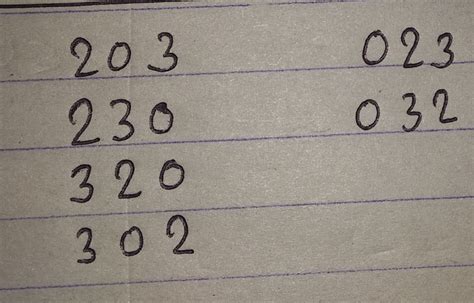 203 023
230 032
320
302